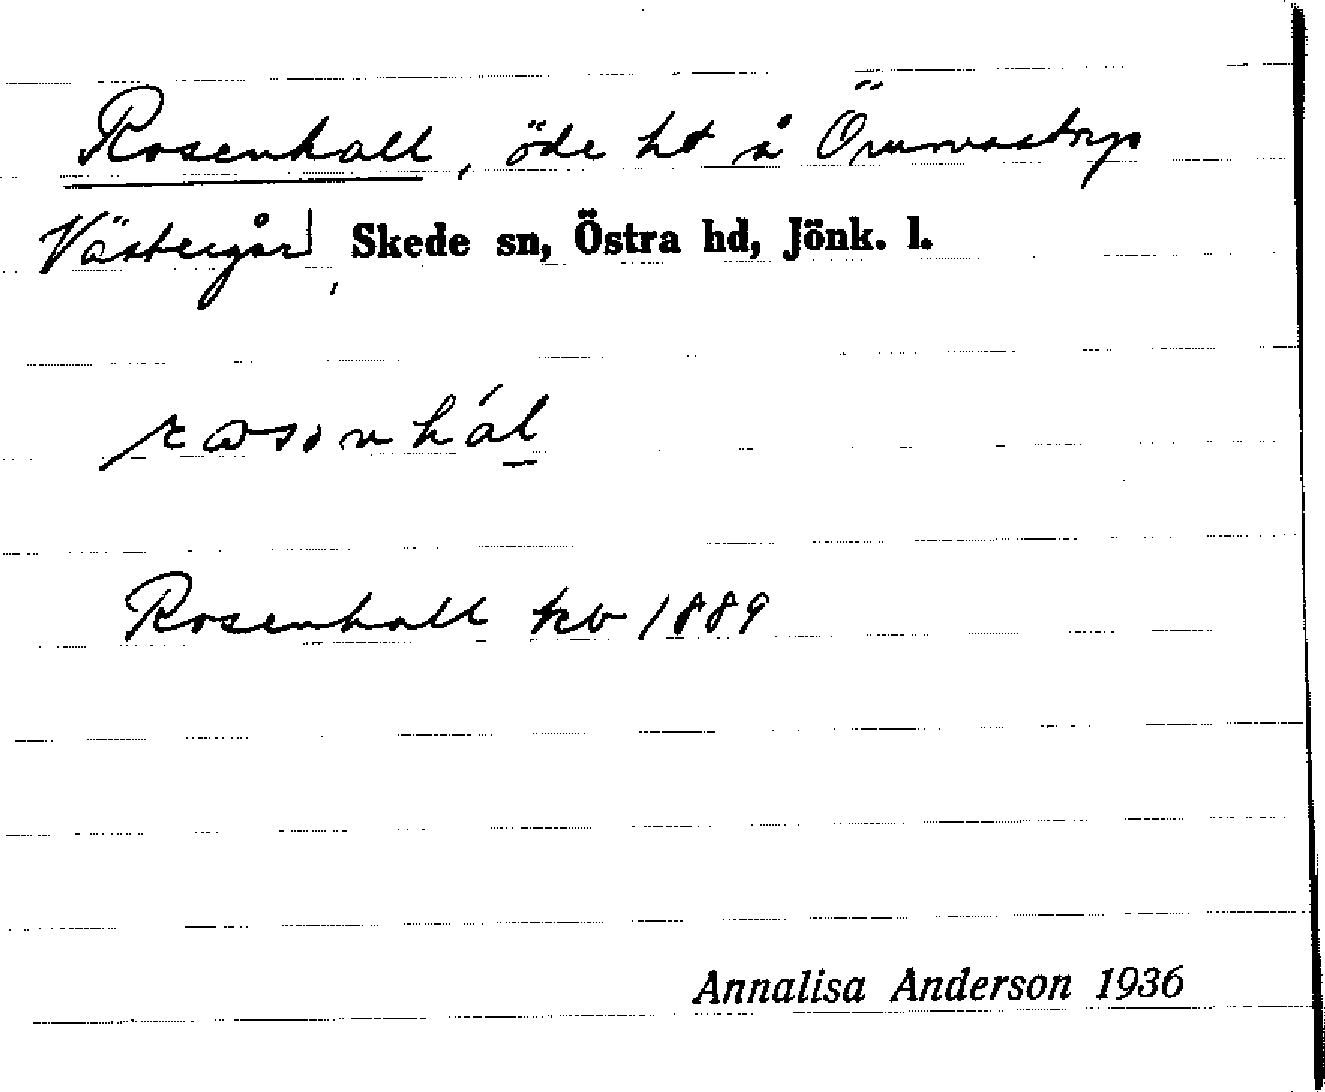 Rosenhall, öde ht å Ömmvastorp
Västergård, Skede sn, Östra hd, Jönk. l.
Rosenhall kb 1889
Annalisa Anderson 1936